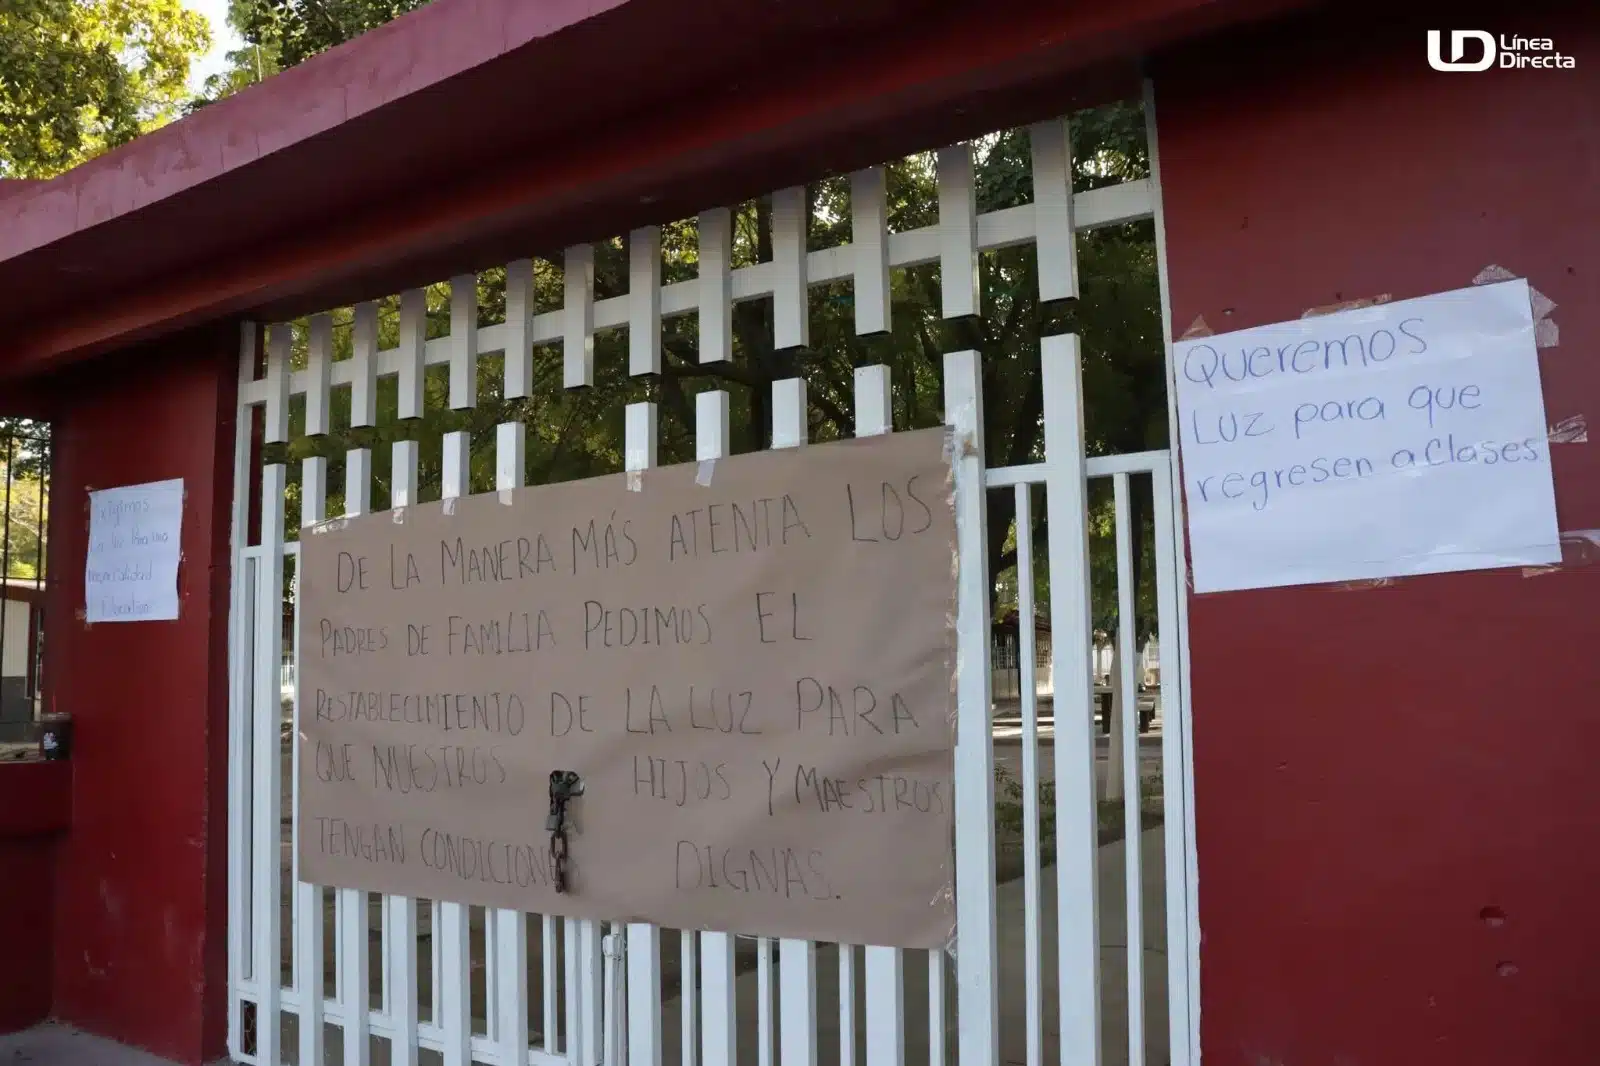 Línea
Directa
Exigimos
la luz Para una
mejor calidad
Educativa
DE LA MANERA MÁS ATENTA LOS
PADRES DE FAMILIA PEDIMOS EL
RESTABLECIMIENTO DE LA LUZ PARA
QUE NUESTROS HIJOS Y MAESTROS
TENGAN CONDICIONES DIGNAS.
Queremos
Luz para que
regresen a Clases